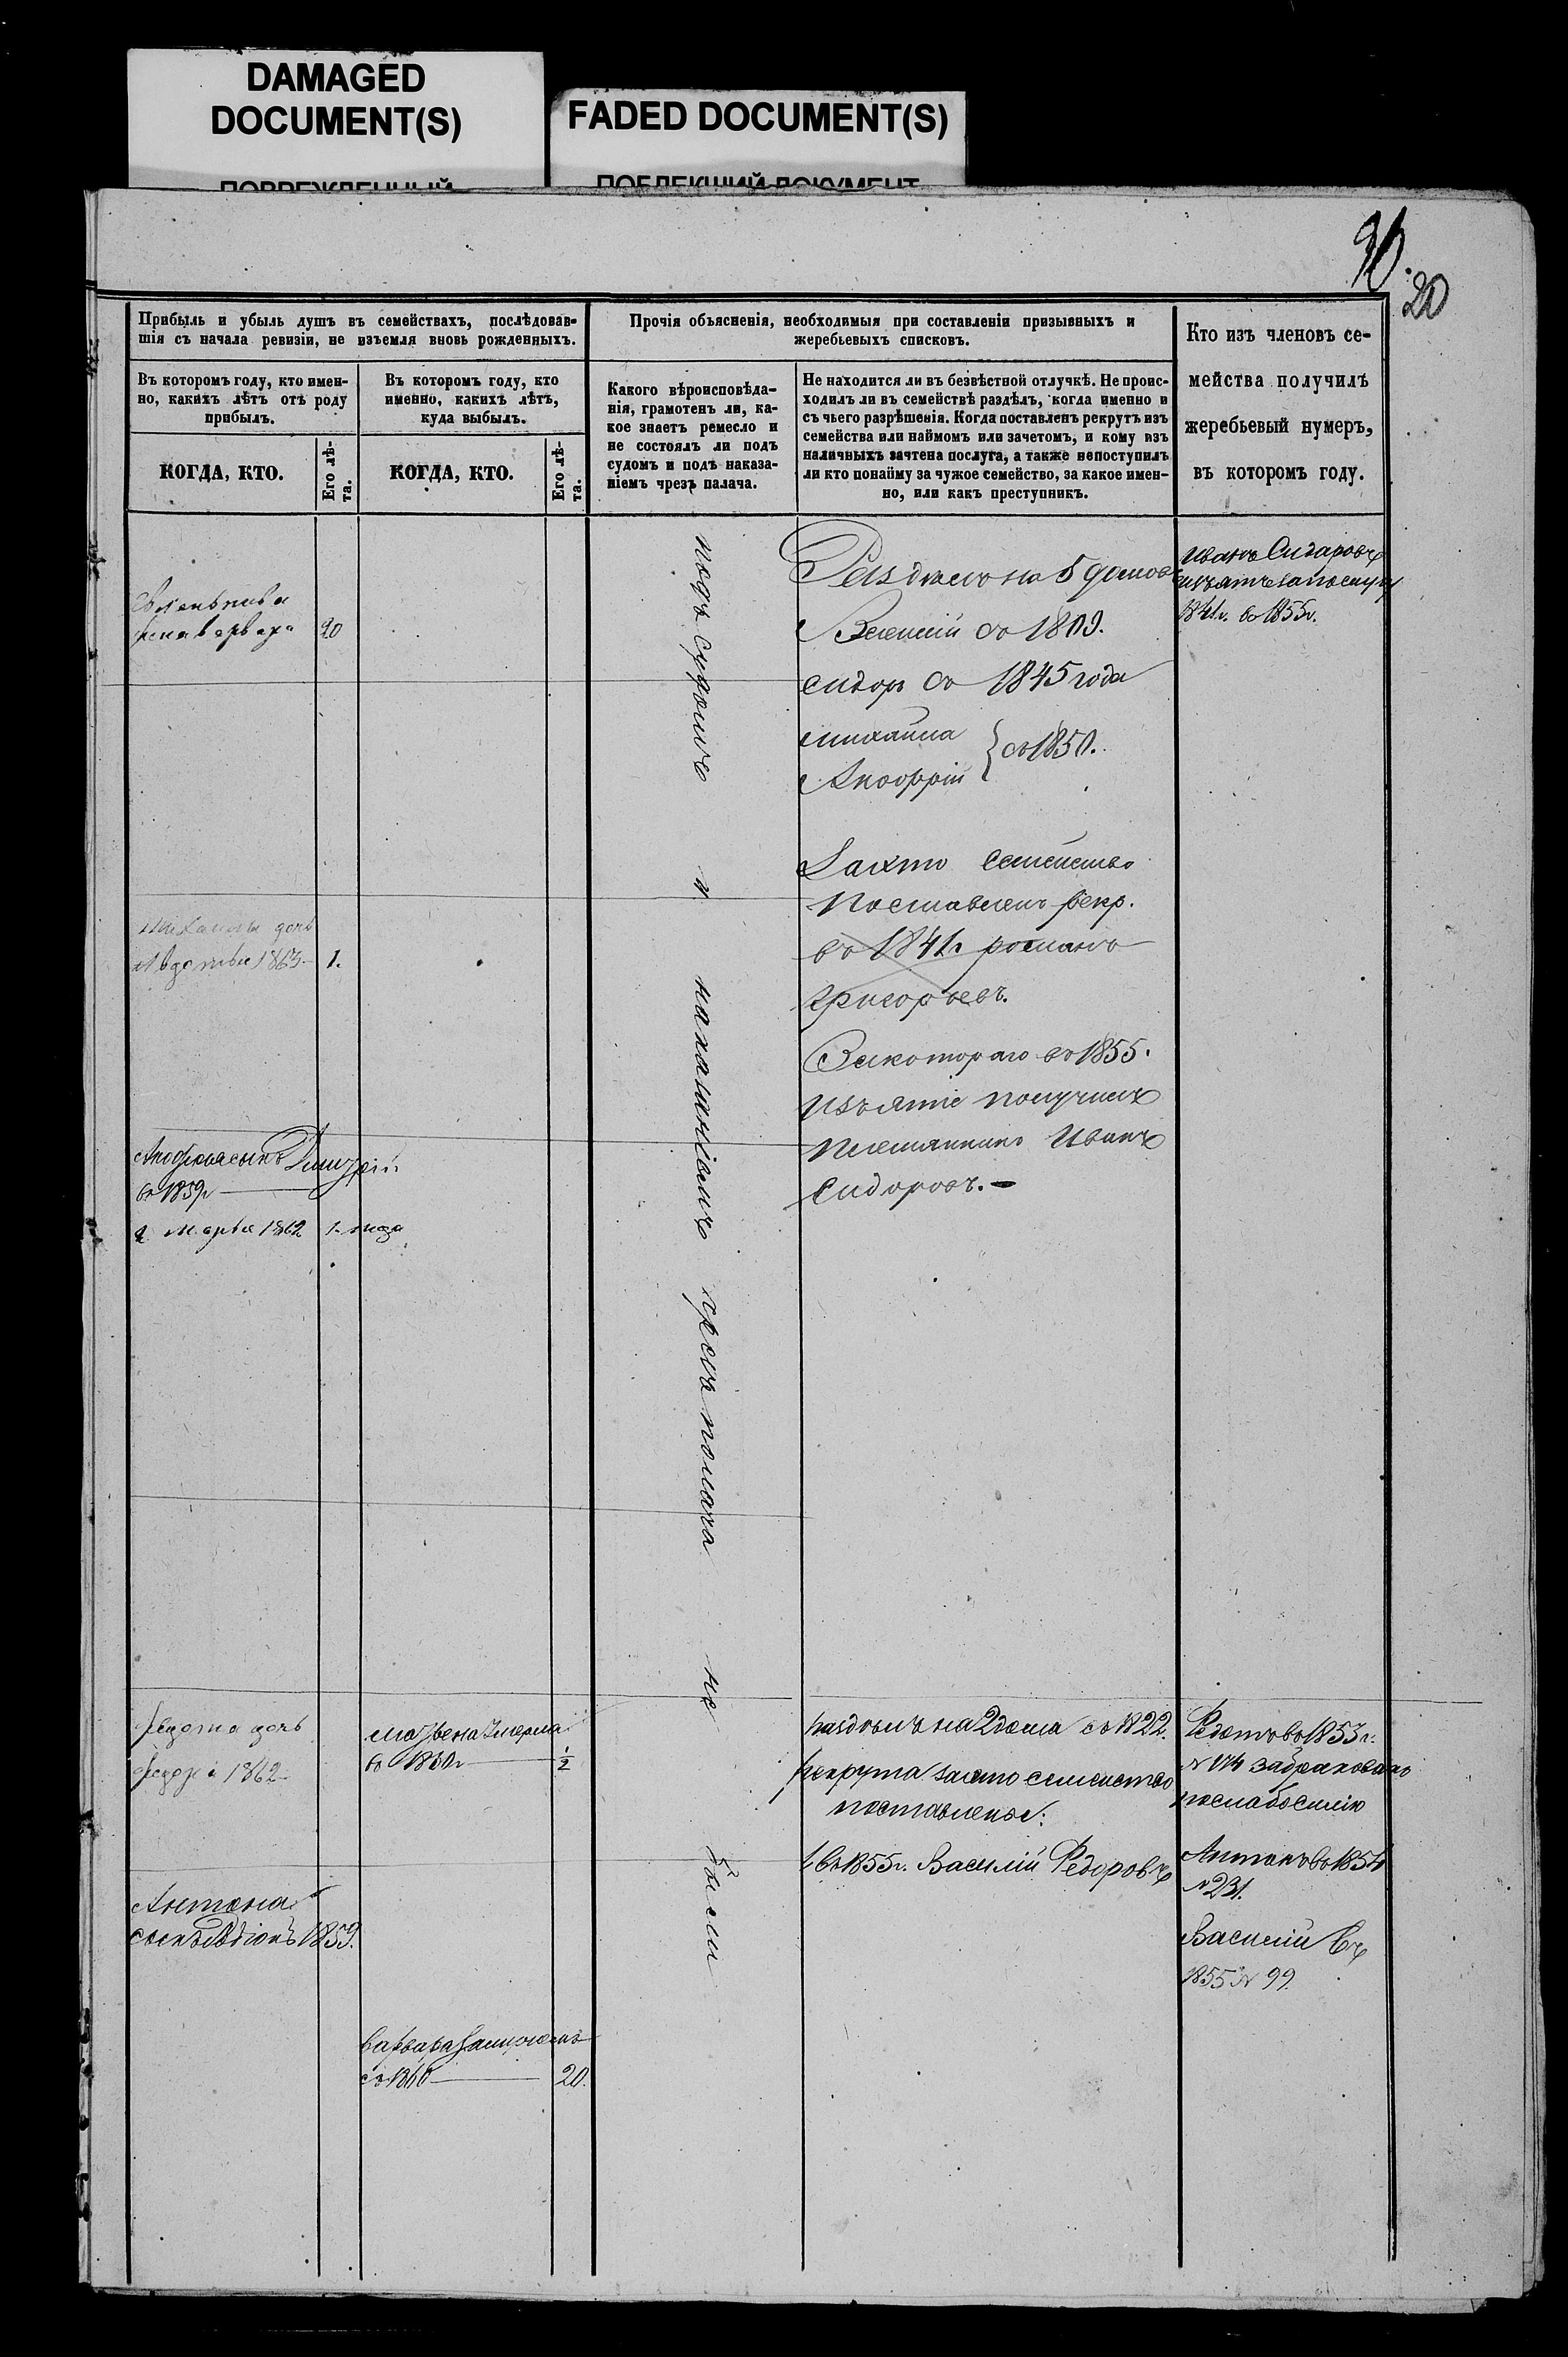 DAMAGED
DOCUMENT(S)
ПОВРЕЖДЕННЫЙ
FADED DOCUMENT(S)
ПОБЛЕКШИЙ ДОКУМЕНТ
20
Прибыль и убыль душъ въ семействахъ, послѣдовав-
шія съ начала ревизіи, не изъемля вновь рожденныхъ.
Въ которомъ году, кто имен-
но, какихъ лѣтъ отъ роду
прибылъ.
КОГДА, КТО.
Его лѣ-
та.
Въ которомъ году, кто
именно, какихъ лѣтъ,
куда выбылъ.
КОГДА, КТО.
Его лѣ-
та.
Прочія объясненія, необходимыя при составленіи призывныхъ и
жеребьевыхъ списковъ.
Какого вѣроисповѣда-
нія, грамотенъ ли, ка-
кое знаетъ ремесло и
не состоялъ ли подъ
судомъ и подъ наказа-
ніемъ чрезъ палача.
Не находится ли въ безвѣстной отлучкѣ. Не проис-
ходилъ ли въ семействѣ раздѣлъ, когда именно и
съ чьего разрѣшенія. Когда поставленъ рекрутъ изъ
семейства или наймомъ или зачетомъ, и кому изъ
наличныхъ зачтена послуга, а также непоступилъ
ли кто понайму за чужое семейство, за какое имен-
но, или какъ преступникъ.
Кто изъ членовъ се-
мейства получилъ
жеребьевый нумеръ,
въ которомъ году.
жена варвара 20
Михаила дочь
Авдотья 1863 1.
сынъ Дмитрій
въ 1859
2 Марья 1862 1. года
дочь
1862
въ 1860г ½
Антона
сынъ 1859.
Варвара замужемъ
въ 1860 20.
подъ судомъ и наказаніемъ чрезъ полача не были
на 5 домовъ
съ 1809.
Сидоръ съ 1845 года
Михайла
съ 1850.
семейство
Поставленъ рекр.
въ 1841г романъ
григорьевъ.
За котораго въ 1855.
изъятіе получилъ
племянникъ Иванъ
Сидоровъ.
раздѣлъ на 2 дома съ 1822.
рекрута семейство
поставлено:
1 въ 1855г. Василій Федоровъ
Иванъ Сидоровъ
изъятъ за послугу
1841г. въ 1855г.
Федотъ въ 1853г.
забракованъ
послабосилію
Антонъ въ 1854
№ 231.
Василій въ
1855 № 99.